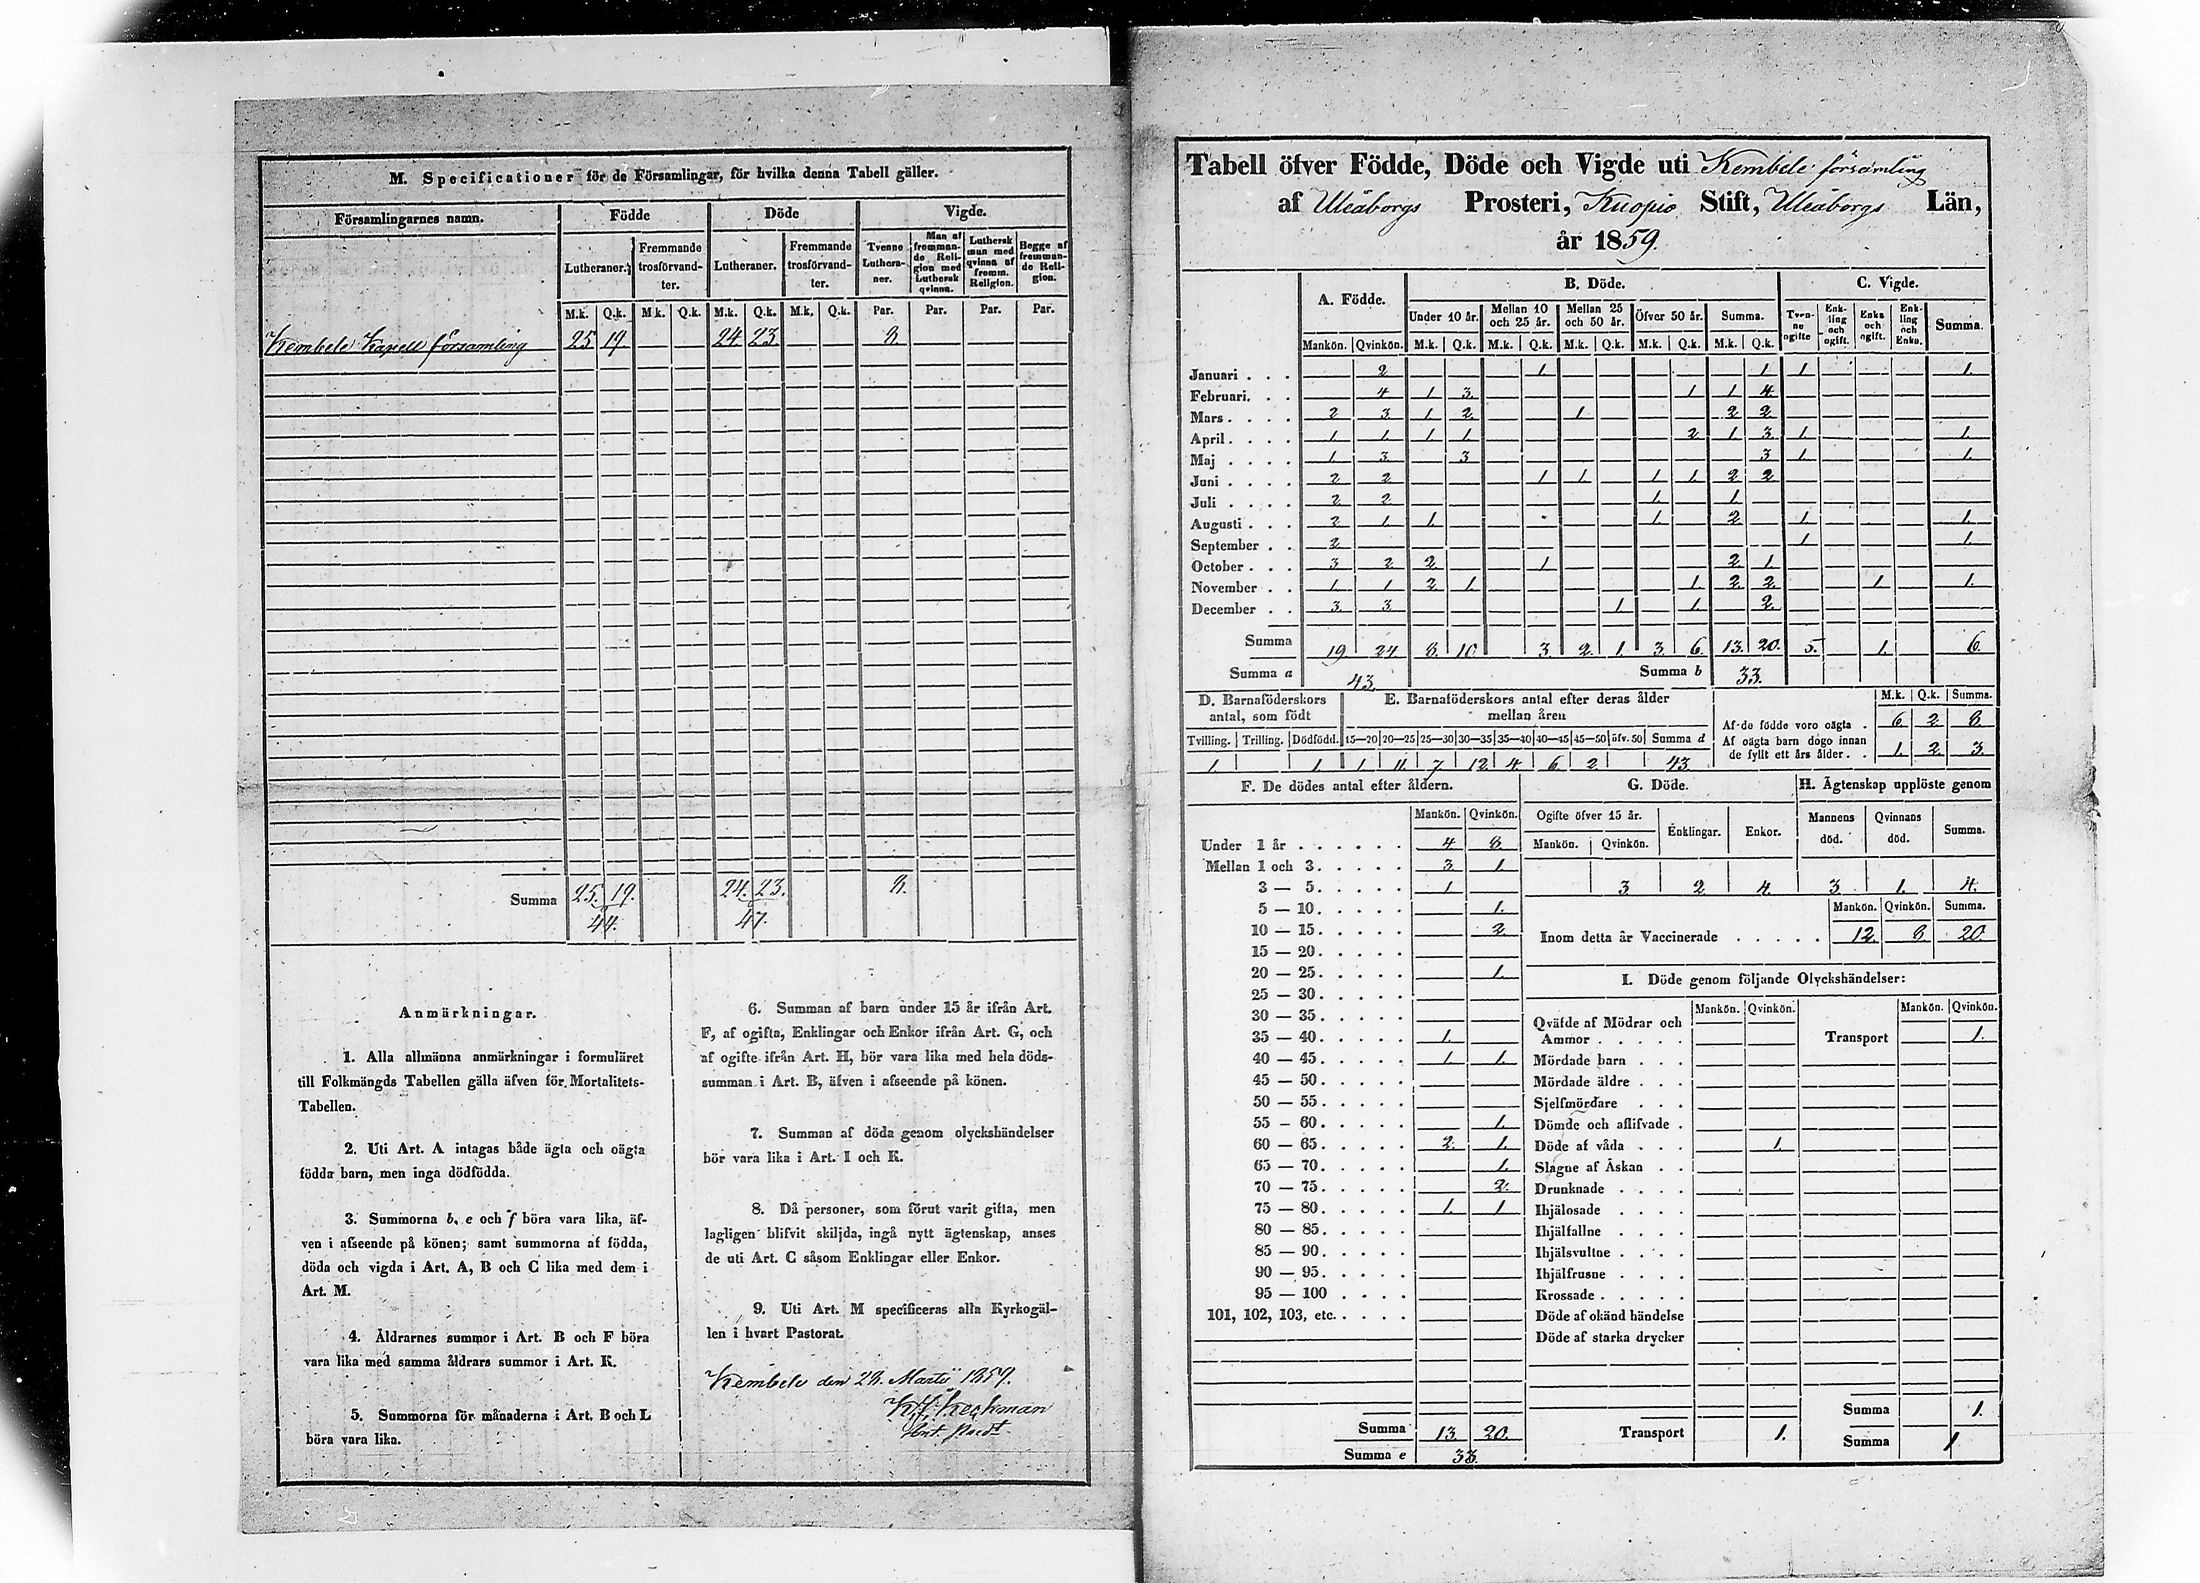 M. Specificationer för de Församlingar, för hvilka denna Tabell gäller.
Församlingarnes namn. Födde Döde Vigde.
Lutheraner. Fremmande trosförvandter. Lutheraner. Fremmande trosförvandter. Tvenne Lutheraner. Man af fremmande Religion med Luthersk qvinna. Luthersk man med qvinna af fremm. Religion. Begge af fremmande Religion.
M.k. Q.k. M.k. Q.k. M.k. Q.k. M.k. Q.k. Par. Par. Par. Par.
Kembele Kapell församling 25 19. 24. 23. 8.
Summa 25. 19. 24. 23. 8.
44. 47.
Anmärkningar.
1. Alla allmänna anmärkningar i formuläret
till Folkmängds Tabellen gälla äfven för Mortalitets-
Tabellen.
2. Uti Art. A intagas både ägta och oägta
födda barn, men inga dödfödda.
3. Summorna b, e och f böra vara lika, äf-
ven i afseende på könen; samt summorna af födda,
döda och vigda i Art. A, B och C lika med dem i
Art. M.
4. Åldrarnes summor i Art. B och F böra
vara lika med samma åldrars summor i Art. K.
5. Summorna för månaderna i Art. B och L
böra vara lika.
6. Summan af barn under 15 år ifrån Art.
F, af ogifta, Enklingar och Enkor ifrån Art. G, och
af ogifte ifrån Art. H, bör vara lika med hela döds-
summan i Art. B, äfven i afseende på könen.
7. Summan af döda genom olyckshändelser
bör vara lika i Art. I och K.
8. Då personer, som förut varit gifta, men
lagligen blifvit skiljda, ingå nytt ägtenskap, anses
de uti Art. C såsom Enklingar eller Enkor.
9. Uti Art. M specificeras alla Kyrkogäl-
len i hvart Pastorat.
Kembele den 28. Martii 1859.
Tabell öfver Födde, Döde och Vigde uti Kembele församling
af Uleåborgs Prosteri, Kuopio Stift, Uleåborgs Län,
år 1859.
A. Födde. B. Döde. C. Vigde.
Under 10 år. Mellan 10 och 25 år. Mellan 25 och 50 år. Öfver 50 år. Summa. Tvenne ogifte Enkling och ogift. Enka och ogift. Enkling och Enka. Summa.
Mankön. Qvinkön. M.k. Q.k. M.k. Q.k. M.k. Q.k. M.k. Q.k. M.k. Q.k.
Januari . . . 2 1. 1. 1. 1.
Februari. . . 4 1 3. 1 1 4.
Mars . . . . 2 3 1 2. 1 2 2
April . . . . 1 1 1 1 2 1 3 1. 1.
Maj . . . . 1 3. 3 3 1. 1.
Juni . . . . 2 2 1 1. 1 1 2 2
Juli . . . . 2 2 1 1.
Augusti . . . 2 1 1. 1. 2 1. 1.
September . . 2 1. 1.
October . . . 3 2 2. 1. 2 1.
November . . 1. 1 2. 1. 1. 2 2. 1. 1.
December . . 3. 3 1 1. 2.
Summa 19. 24 8. 10. 3. 2. 1. 3. 6. 13. 20. 5. 1. 6.
Summa a 43. Summa b 33.
D. Barnaföderskors antal, som födt
E. Barnaföderskors antal efter deras ålder mellan åren
M.k. Q.k. Summa.
Af de födde voro oägta . 6. 2. 8.
Af oägta barn dogo innan de fyllt ett års ålder . . 1. 2. 3.
Tvilling. Trilling. Dödfödd. 15—20 20—25 25—30 30—35 35—40 40—45 45—50 öfv. 50 Summa d
1. 1. 1. 11. 7. 12. 4. 6. 2. 43
F. De dödes antal efter åldern.
Mankön. Qvinkön.
Under 1 år . . . . . . 4 8.
Mellan 1 och 3. . . . . . 3. 1.
3 — 5. . . . . 1
5 — 10. . . . . 1.
10 — 15. . . . . 2
15 — 20. . . . .
20 — 25. . . . . 1.
25 — 30. . . . .
30 — 35. . . . .
35 — 40. . . . . 1.
40 — 45. . . . . 1 1.
45 — 50. . . . .
50 — 55. . . . .
55 — 60. . . . . 1.
60 — 65. . . . . 2. 1.
65 — 70. . . . . 1.
70 — 75. . . . . 2.
75 — 80. . . . . 1. 1
80 — 85. . . . .
85 — 90. . . . .
90 — 95. . . . .
95 — 100 . . . .
101, 102, 103, etc. . . . .
Summa 13. 20.
Summa e 33.
G. Döde.
Ogifte öfver 15 år. Enklingar. Enkor.
Mankön. Qvinkön.
3 2. 4.
H. Ägtenskap upplöste genom
Mannens död. Qvinnans död. Summa.
3. 1. 4.
Mankön. Qvinkön. Summa.
Inom detta år Vaccinerade . . . . . 12. 8 20.
I. Döde genom följande Olyckshändelser:
Mankön. Qvinkön. Mankön. Qvinkön.
Qväfde af Mödrar och Ammor . . . . .
Transport 1.
Mördade barn . . .
Mördade äldre . . .
Sjelfmördare . . .
Dömde och aflifvade .
Döde af våda . . . 1.
Slagne af Åskan . .
Drunknade . . . .
Ihjälosade . . . .
Ihjälfallne . . . .
Ihjälsvultne . . . .
Ihjälfrusne . . . .
Krossade . . . . .
Döde af okänd händelse
Döde af starka drycker
Summa 1.
Transport 1.
Summa 1